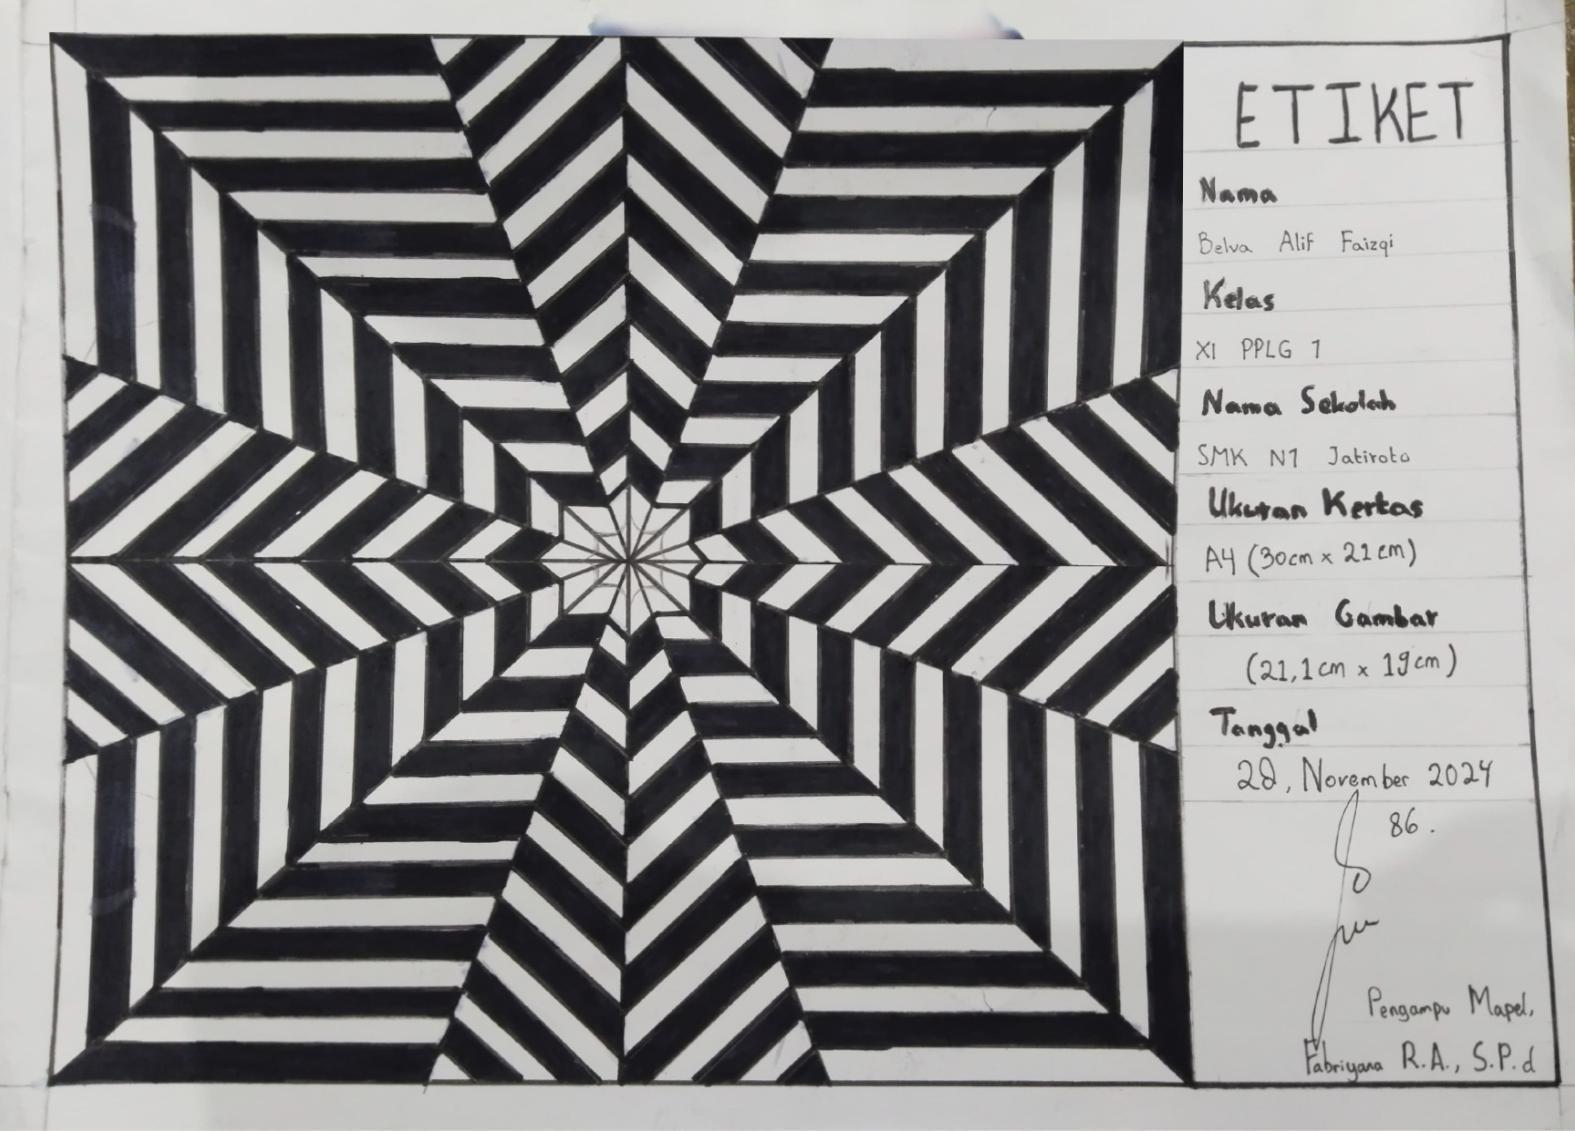 ETIKET
Nama
Belva Alif Faizqi
Kelas
XI PPLG 1
Nama Sekolah
SMK N1 Jatiroto
Ukuran Kertas
A4 (30cm x 21cm)
Ukuran Gambar
(21,1cm x 19cm)
Tanggal
28, November 2024
86.
Pengampu Mapel,
Fabriyana R.A., S.P.d